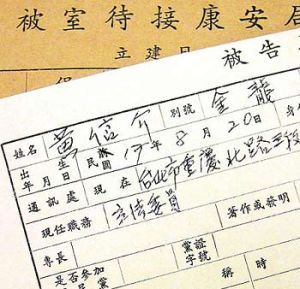 被室待接康安局
立建日
被告
姓名 黃信介 別號 金龍 身
出生年月日 民國17年8月20日
通訊處 現在 台北市重慶北路三段
現任職務 立法委員
專長 著作或發明
是否參加 黨 黨證字號 稱 時